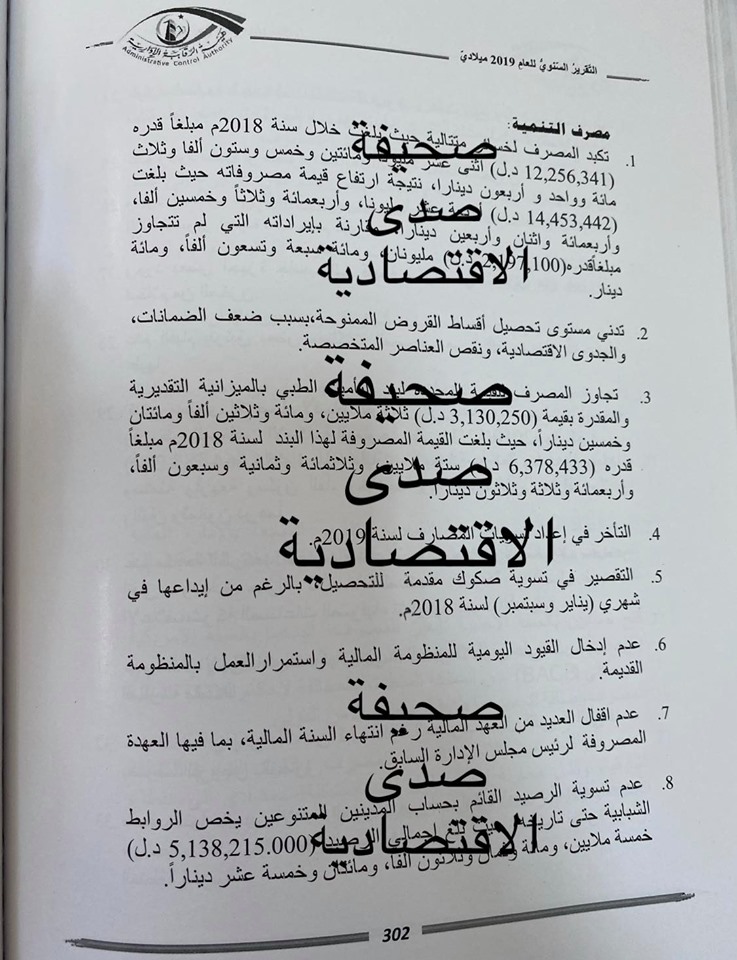 هيئة الرقابة الإدارية
Administrative Control Authority
التقرير السنوي للعام 2019 ميلادي
مصرف التنمية:
1. تكبد المصرف متتالية حيث بلغت خلال سنة 2018م مبلغاً قدره
(12,256,341 د.ل) أثنى عشر ومائتين وخمس وستون ألفا وثلاث
مائة وواحد و أربعون دينارا، نتيجة ارتفاع قيمة مصروفاته حيث بلغت
(14,453,442 د.ل) عشر مليونا، وأربعمائة وثلاثاً وخمسين ألفا،
وأربعمائة واثنان وأربعين دينارا، مقارنة بإيراداته التي لم تتجاوز
مبلغاقدره(2,197,100د.ل) مليونان، ومائة سبعة وتسعون ألفاً، ومائة
دينار.
2. تدني مستوى تحصيل أقساط القروض الممنوحة،بسبب ضعف الضمانات،
والجدوى الاقتصادية، ونقص العناصر المتخصصة.
3. تجاوز المصرف المحددة لبند التأمين الطبي بالميزانية التقديرية
والمقدرة بقيمة (3,130,250 د.ل) ثلاثة ملايين، ومائة وثلاثين ألفاً ومائتان
وخمسين ديناراً، حيث بلغت القيمة المصروفة لهذا البند لسنة 2018م مبلغاً
قدره (6,378,433 د.ل) ستة ملايين، وثلاثمائة وثمانية وسبعون ألفاً،
وأربعمائة وثلاثة وثلاثون ديناراً.
4. التأخر في إعداد تسويات المصارف لسنة 2019م.
5. التقصير في تسوية صكوك مقدمة للتحصيل، بالرغم من إيداعها في
شهري (يناير وسبتمبر) لسنة 2018م.
6. عدم إدخال القيود اليومية للمنظومة المالية واستمرارالعمل بالمنظومة
القديمة.
7. عدم اقفال العديد من العهد المالية رغم انتهاء السنة المالية، بما فيها العهدة
المصروفة لرئيس مجلس الإدارة السابق.
8. عدم تسوية الرصيد القائم بحساب المدينين المتنوعين يخص الروابط
الشبابية حتى تاريخه، حيث بلغ اجمالي الرصيد (5,138,215.000 د.ل)
خمسة ملايين، ومائة وثمان وثلاثون الفا، ومائتان وخمسة عشر ديناراً.
صحيفة
صدى
الاقتصادية
صحيفة
صدى
الاقتصادية
صحيفة
صدى
الاقتصادية
302